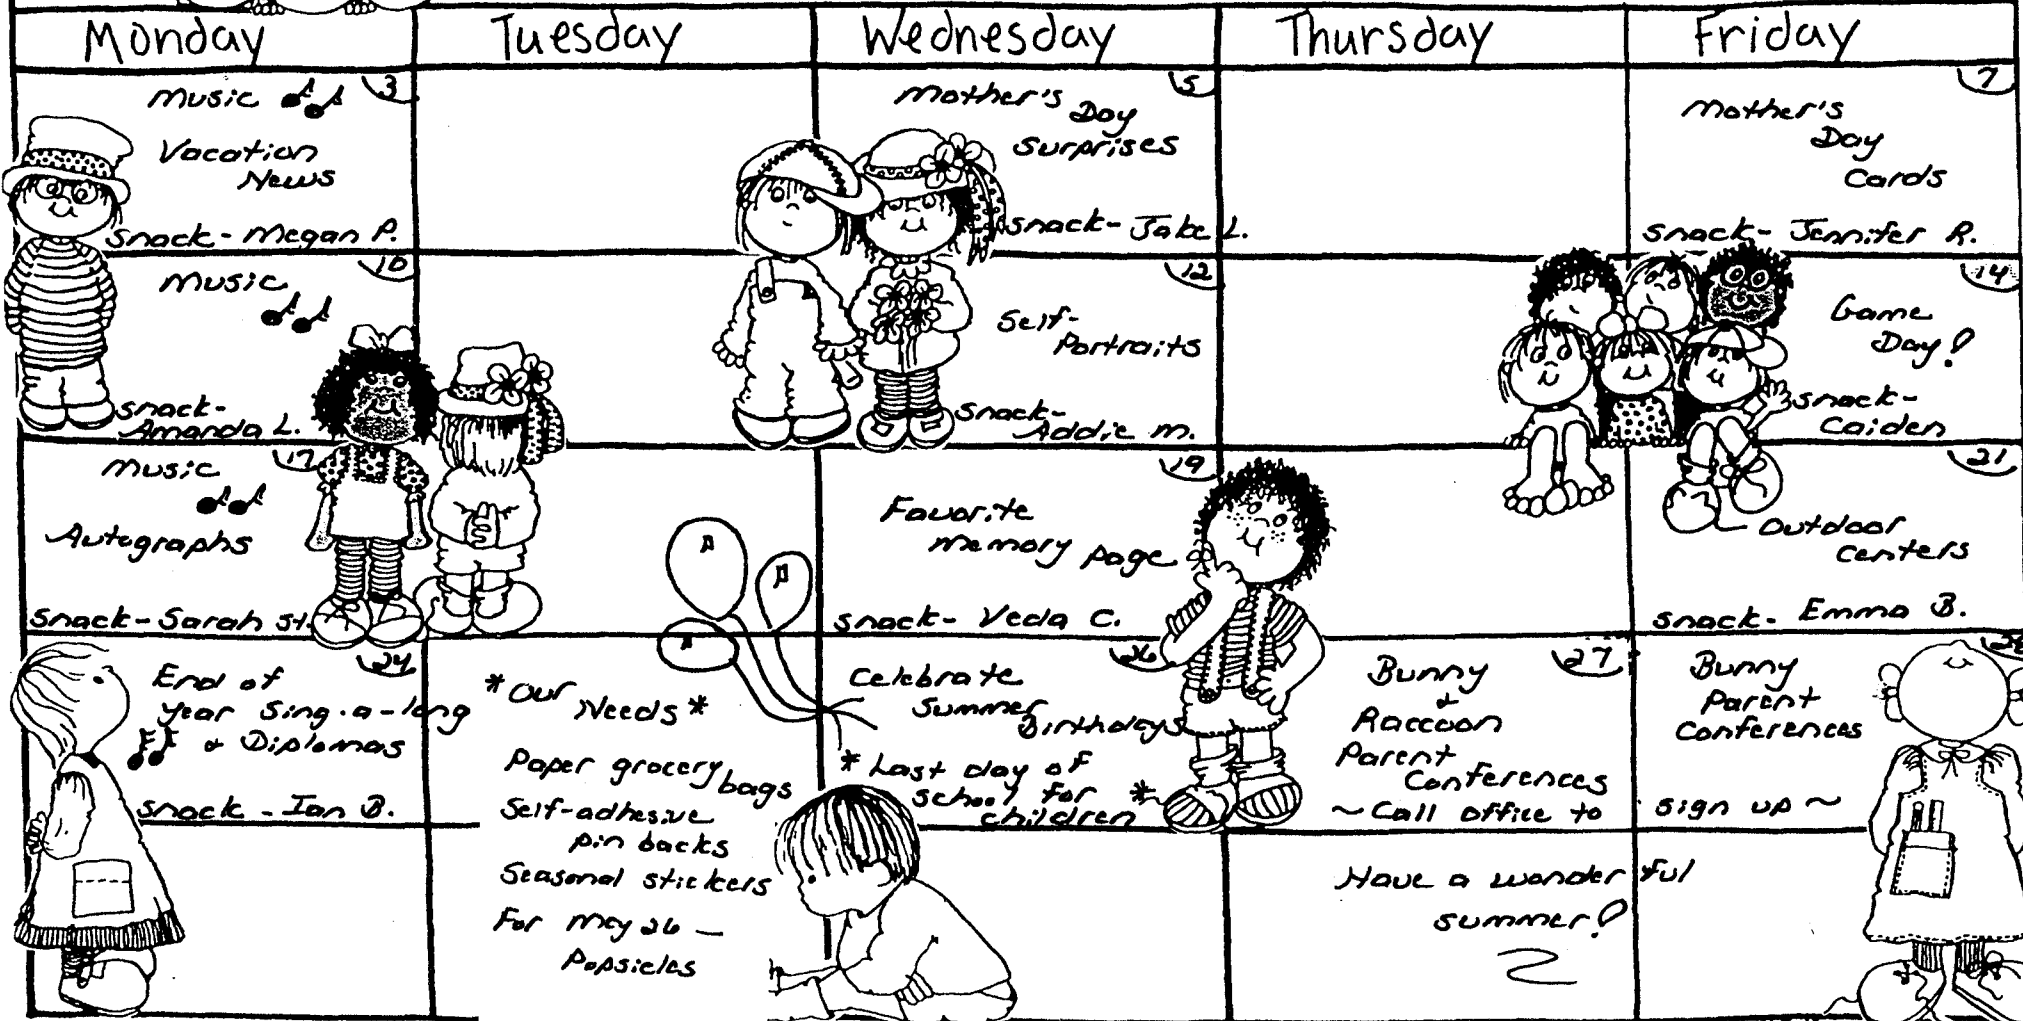 Monday
Tuesday
Wednesday
Thursday
Friday
3
Music
Vacation
News
snack - Megan P.
5
Mother's
Day
Surprises
snack - Jake L.
7
Mother's
Day
Cards
snack - Jennifer R.
10
Music
snack -
Amanda L.
12
Self-
Portraits
snack -
Addie M.
14
Game
Day!
snack -
Caiden
17
Music
Autographs
snack - Sarah St.
19
Favorite
Memory page
snack - Veda C.
21
Outdoor
Centers
snack - Emma B.
24
End of
year Sing-a-long
& Diplomas
snack - Ian B.
*Our
Needs*
Paper grocery
bags
Self-adhesive
pin backs
Seasonal stickers
For May 26 -
Popsicles
26
Celebrate
Summer
Birthdays
* Last day of
school for *
children
27
Bunny
&
Raccoon
Parent
Conferences
~ Call office to sign up ~
28
Bunny
Parent
Conferences
Have a wonderful
summer!